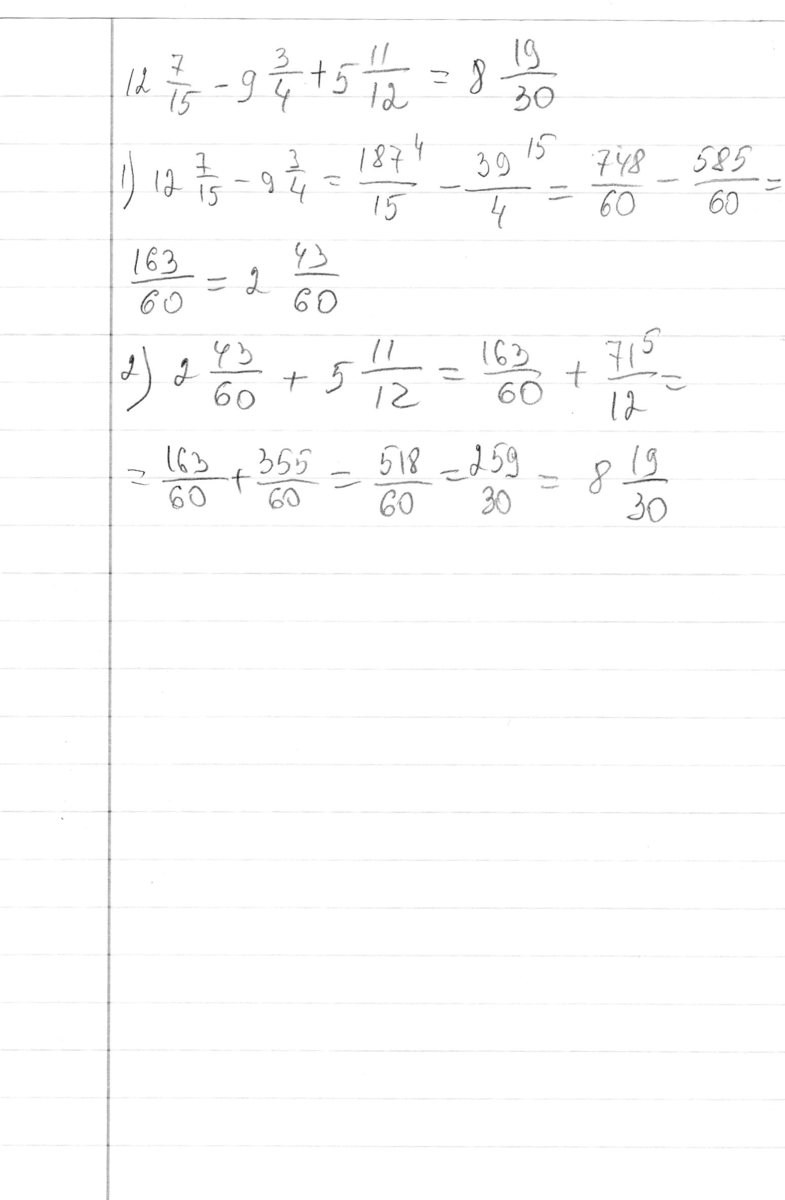 12 7/15 - 9 3/4 + 5 11/12 = 8 19/30
1) 12 7/15 - 9 3/4 = 187⁴/15 - 39¹⁵/4 = 748/60 - 585/60 =
163/60 = 2 43/60
2) 2 43/60 + 5 11/12 = 163/60 + 71⁵/12 =
= 163/60 + 355/60 = 518/60 = 259/30 = 8 19/30